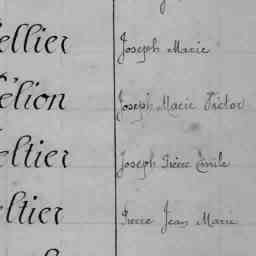 ellier Joseph Marie
élion Joseph Marie Victor
eltier Joseph Pierre Emile
eltier Pierre Jean Marie